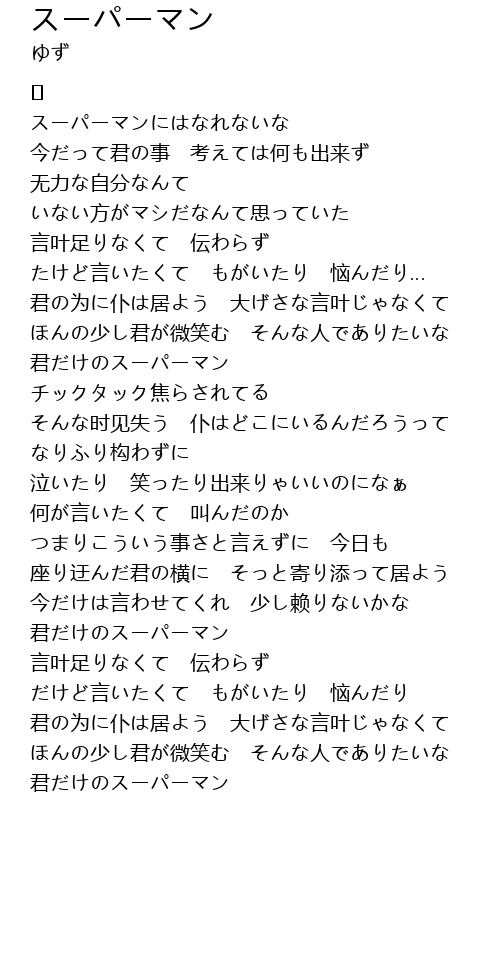 スーパーマン
ゆず
スーパーマンにはなれないな
今だって君の事　考えては何も出来ず
无力な自分なんて
いない方がマシだなんて思っていた
言叶足りなくて　伝わらず
たけど言いたくて　もがいたり　悩んだり...
君の为に仆は居よう　大げさな言叶じゃなくて
ほんの少し君が微笑む　そんな人でありたいな
君だけのスーパーマン
チックタック焦らされてる
そんな时见失う　仆はどこにいるんだろうって
なりふり构わずに
泣いたり　笑ったり出来りゃいいのになぁ
何が言いたくて　叫んだのか
つまりこういう事さと言えずに　今日も
座り迂んだ君の横に　そっと寄り添って居よう
今だけは言わせてくれ　少し赖りないかな
君だけのスーパーマン
言叶足りなくて　伝わらず
だけど言いたくて　もがいたり　悩んだり
君の为に仆は居よう　大げさな言叶じゃなくて
ほんの少し君が微笑む　そんな人でありたいな
君だけのスーパーマン